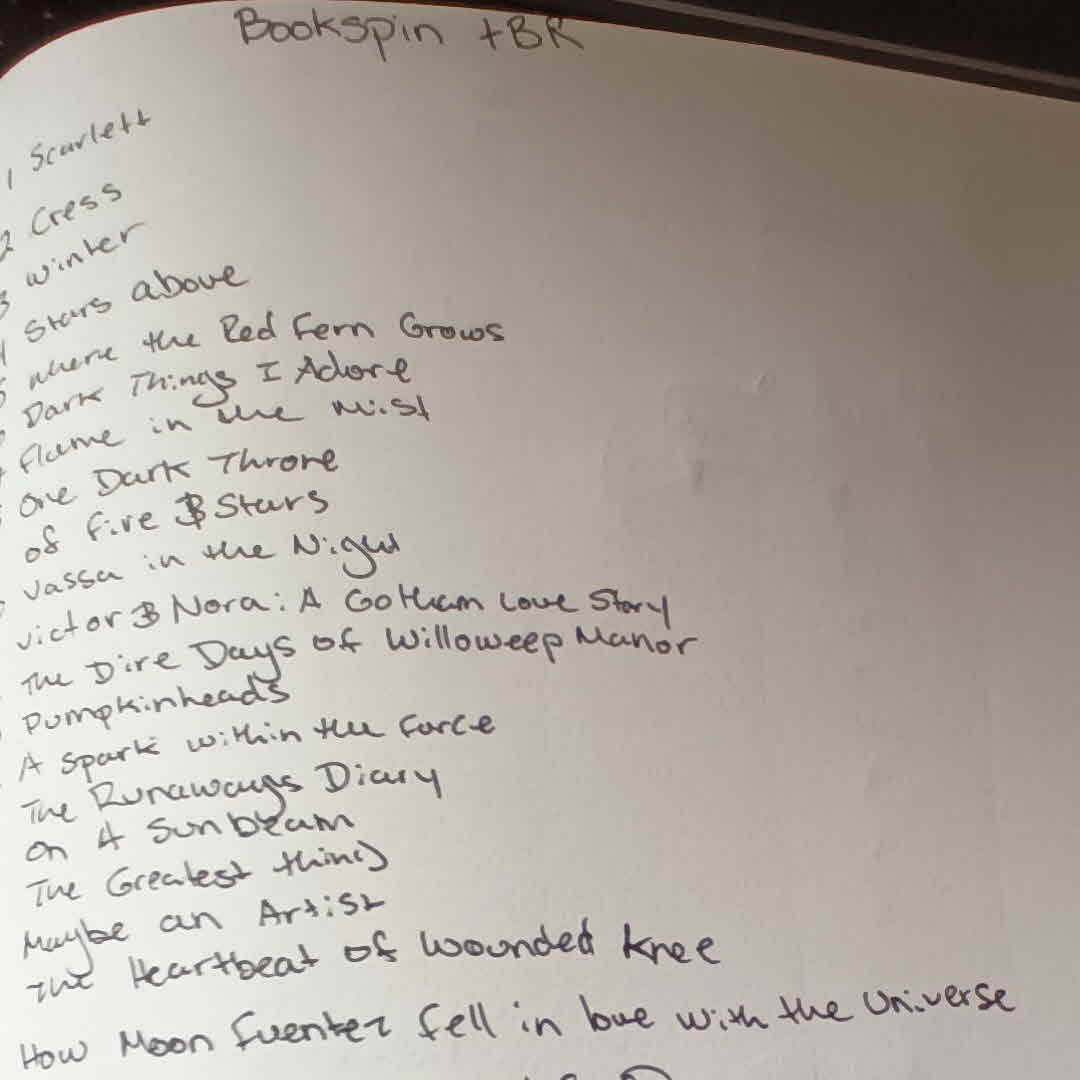 Bookspin tBR
1 Scarlett
2 Cress
3 Winter
4 Stars above
5 where the Red Fern Grows
Dark Things I Adore
flame in the Mist
One Dark Throne
of fire & Stars
Vassa in the Night
Victor & Nora: A Gotham Love Story
The Dire Days of Willoweep Manor
Pumpkinheads
A Spark within the Forge
The Runaways Diary
On A Sunbeam
The Greatest thing
Maybe an Artist
The Heartbeat of Wounded Knee
How Moon Fuentez fell in love with the Universe